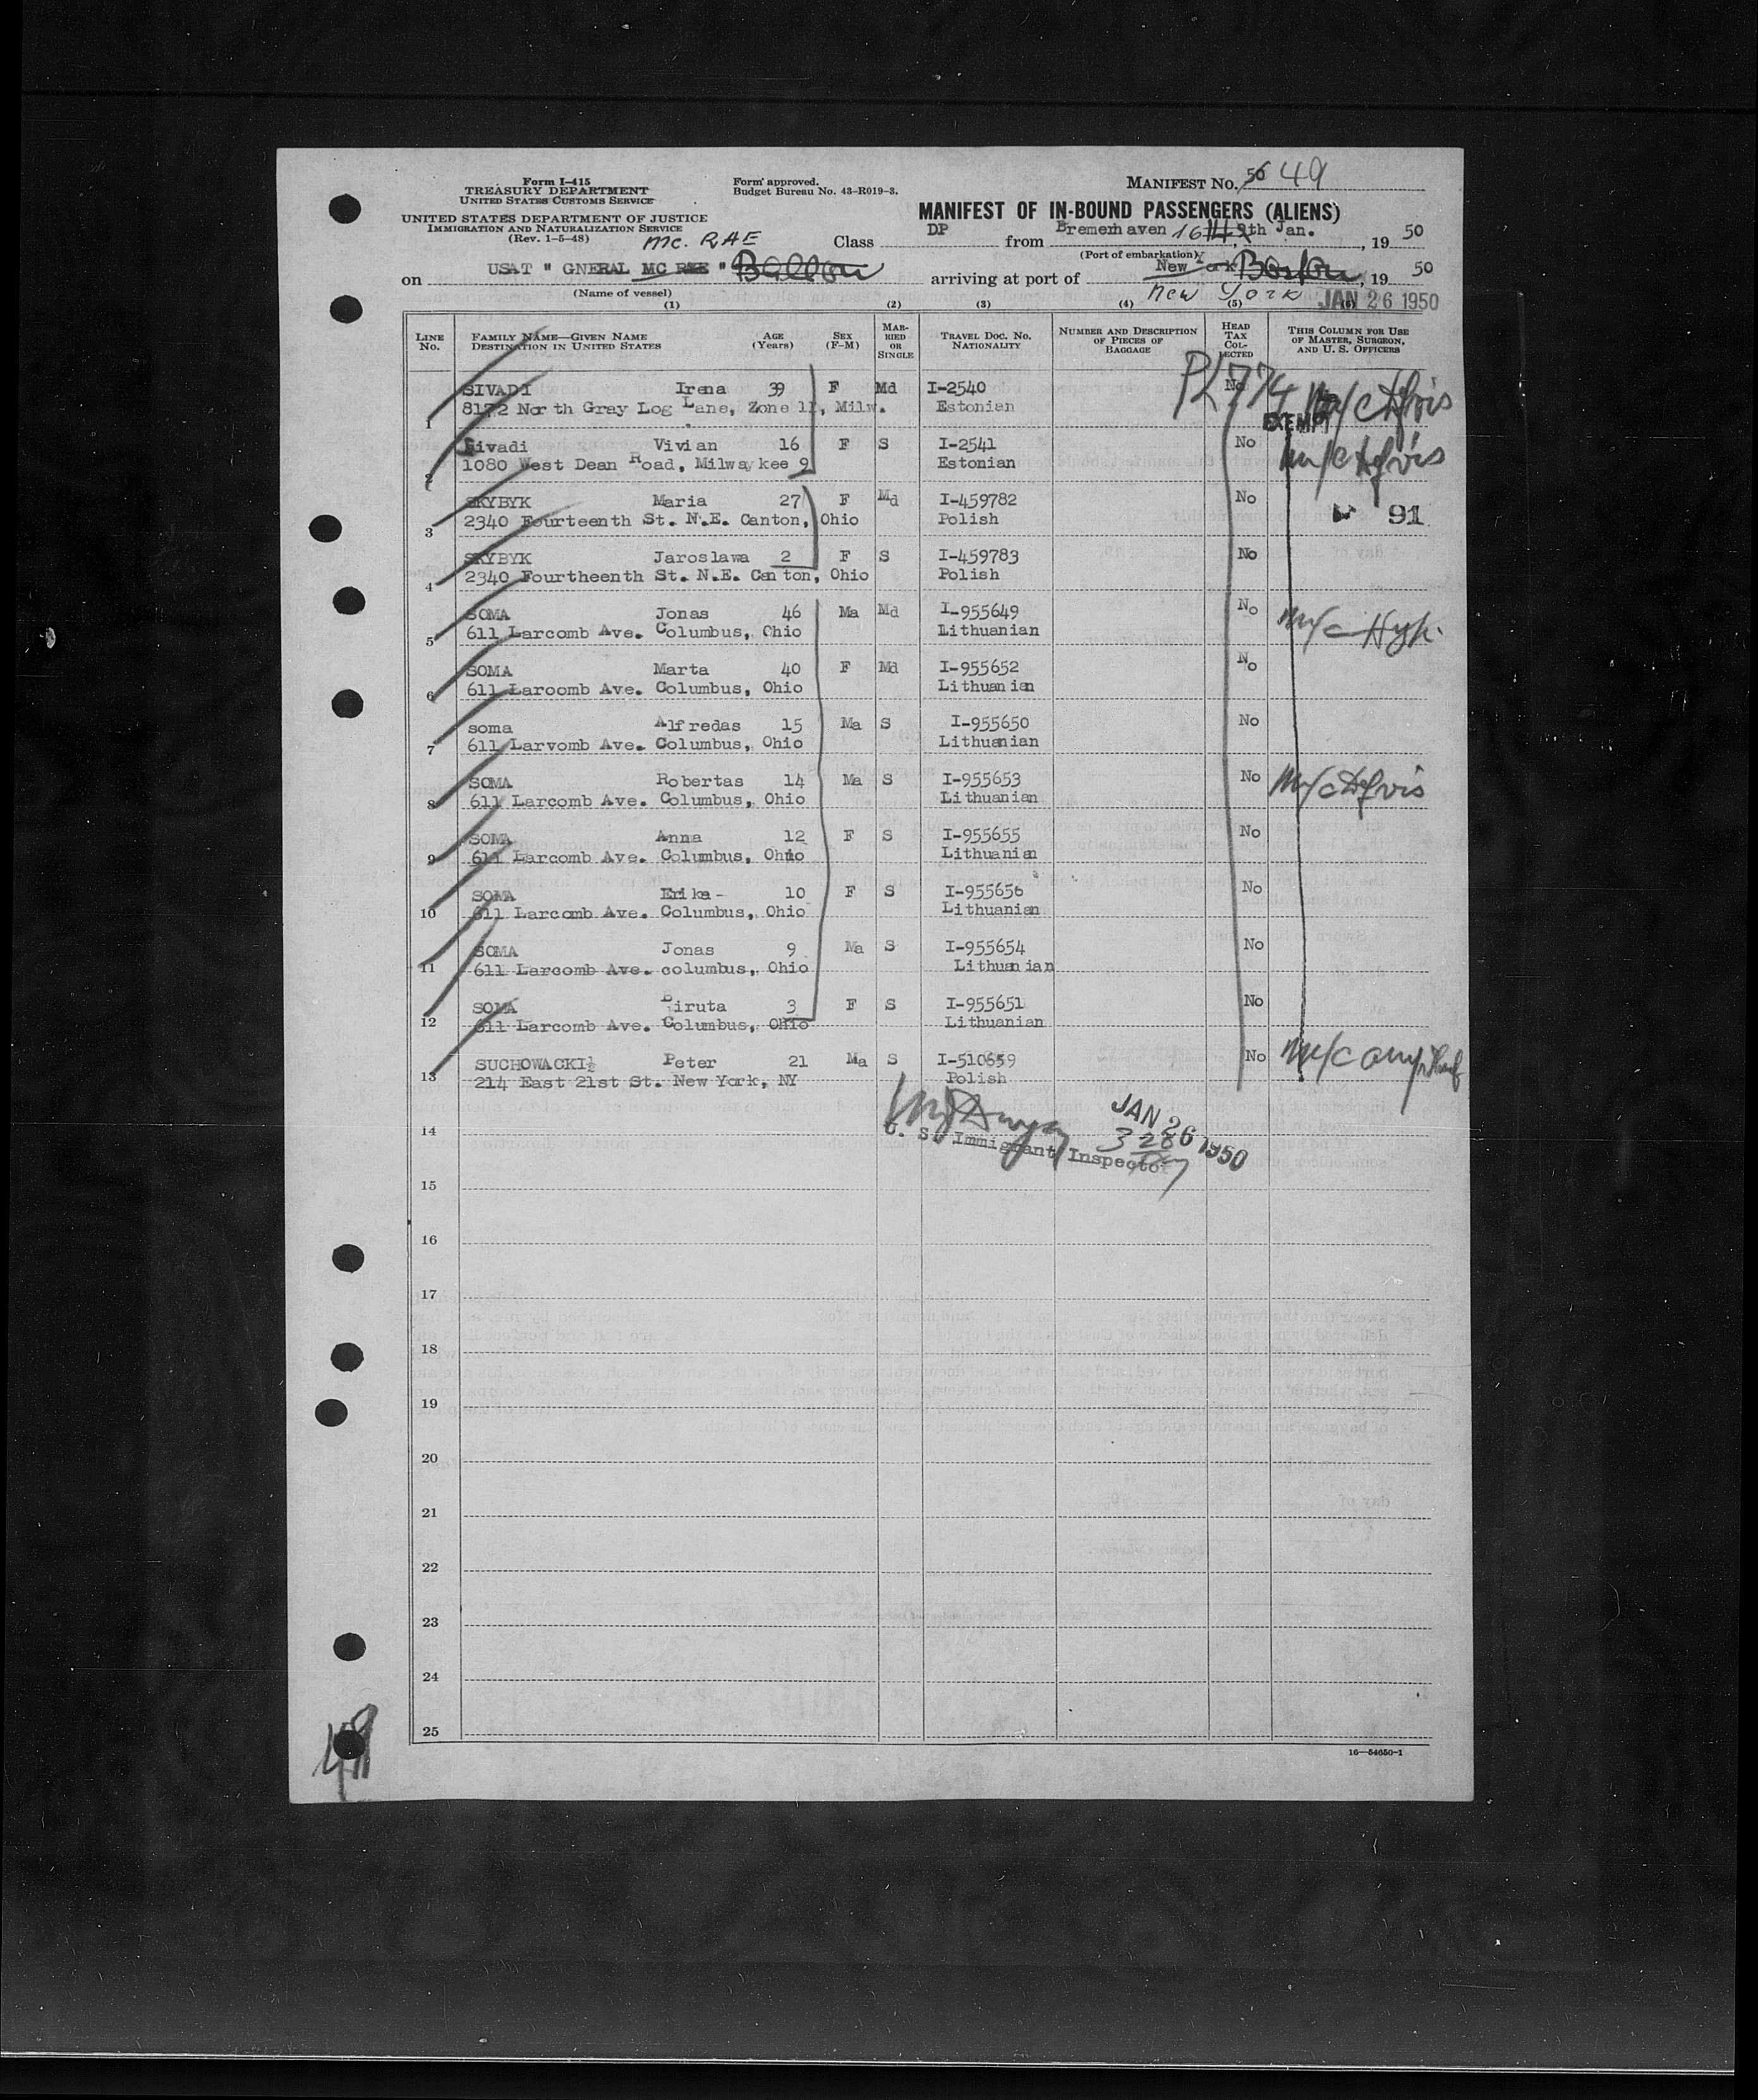 Form I-415
TREASURY DEPARTMENT
UNITED STATES CUSTOMS SERVICE
UNITED STATES DEPARTMENT OF JUSTICE
IMMIGRATION AND NATURALIZATION SERVICE
(Rev. 1-5-48)
Form approved.
Budget Bureau No. 43-R019-3.
MANIFEST NO. 50 49
MANIFEST OF IN-BOUND PASSENGERS (ALIENS)
Mc. RAE
Class DP from Bremerhaven 16 th Jan. , 19 50
(Port of embarkation)
on USAT " GNERAL MC RAE " Ballou arriving at port of New York Boston , 19 50
(Name of vessel)
New York JAN 26 1950
(1) (2) (3) (4) (5) (6)
LINE No. FAMILY NAME—GIVEN NAME DESTINATION IN UNITED STATES AGE (Years) SEX (F-M) MARRIED OR SINGLE TRAVEL DOC. NO. NATIONALITY NUMBER AND DESCRIPTION OF PIECES OF BAGGAGE HEAD TAX COLLECTED THIS COLUMN FOR USE OF MASTER, SURGEON, AND U. S. OFFICERS
PL 774
SIVADI Irena 39 F Md I-2540 No
1 8172 North Gray Log Lane, Zone 11, Milw. Estonian
EXEMPT
Sivadi Vivian 16 F S I-2541 No
2 1080 West Dean Road, Milwaykee 9 Estonian
SKYBYK Maria 27 F Md I-459782 No
3 2340 Fourteenth St. N.E. Canton, Ohio Polish 91
SKYBYK Jaroslawa 2 F S I-459783 No
4 2340 Fourtheenth St. N.E. Canton, Ohio Polish
SOMA Jonas 46 Ma Md I-955649 No
5 611 Larcomb Ave. Columbus, Ohio Lithuanian
SOMA Marta 40 F Md I-955652 No
6 611 Larcomb Ave. Columbus, Ohio Lithuanian
soma Alfredas 15 Ma S I-955650 No
7 611 Larvomb Ave. Columbus, Ohio Lithuanian
SOMA Robertas 14 Ma S I-955653 No
8 611 Larcomb Ave. Columbus, Ohio Lithuanian
SOMA Anna 12 F S I-955655 No
9 611 Larcomb Ave. Columbus, Ohio Lithuanian
SOMA Erika - 10 F S I-955656 No
10 611 Larcomb Ave. Columbus, Ohio Lithuanian
SOMA Jonas 9 Ma S I-955654 No
11 611 Larcomb Ave. columbus, Ohio Lithuanian
SOMA Biruta 3 F S I-955651 No
12 611 Larcomb Ave. Columbus, Ohio Lithuanian
SUCHOWACKI Peter 21 Ma S I-510659 No
13 214 East 21st St. New York, NY Polish
14
U. S. Immigrant Inspector
JAN 26 1950
328
15
16
17
18
19
20
21
22
23
24
25
16—54650-1
49